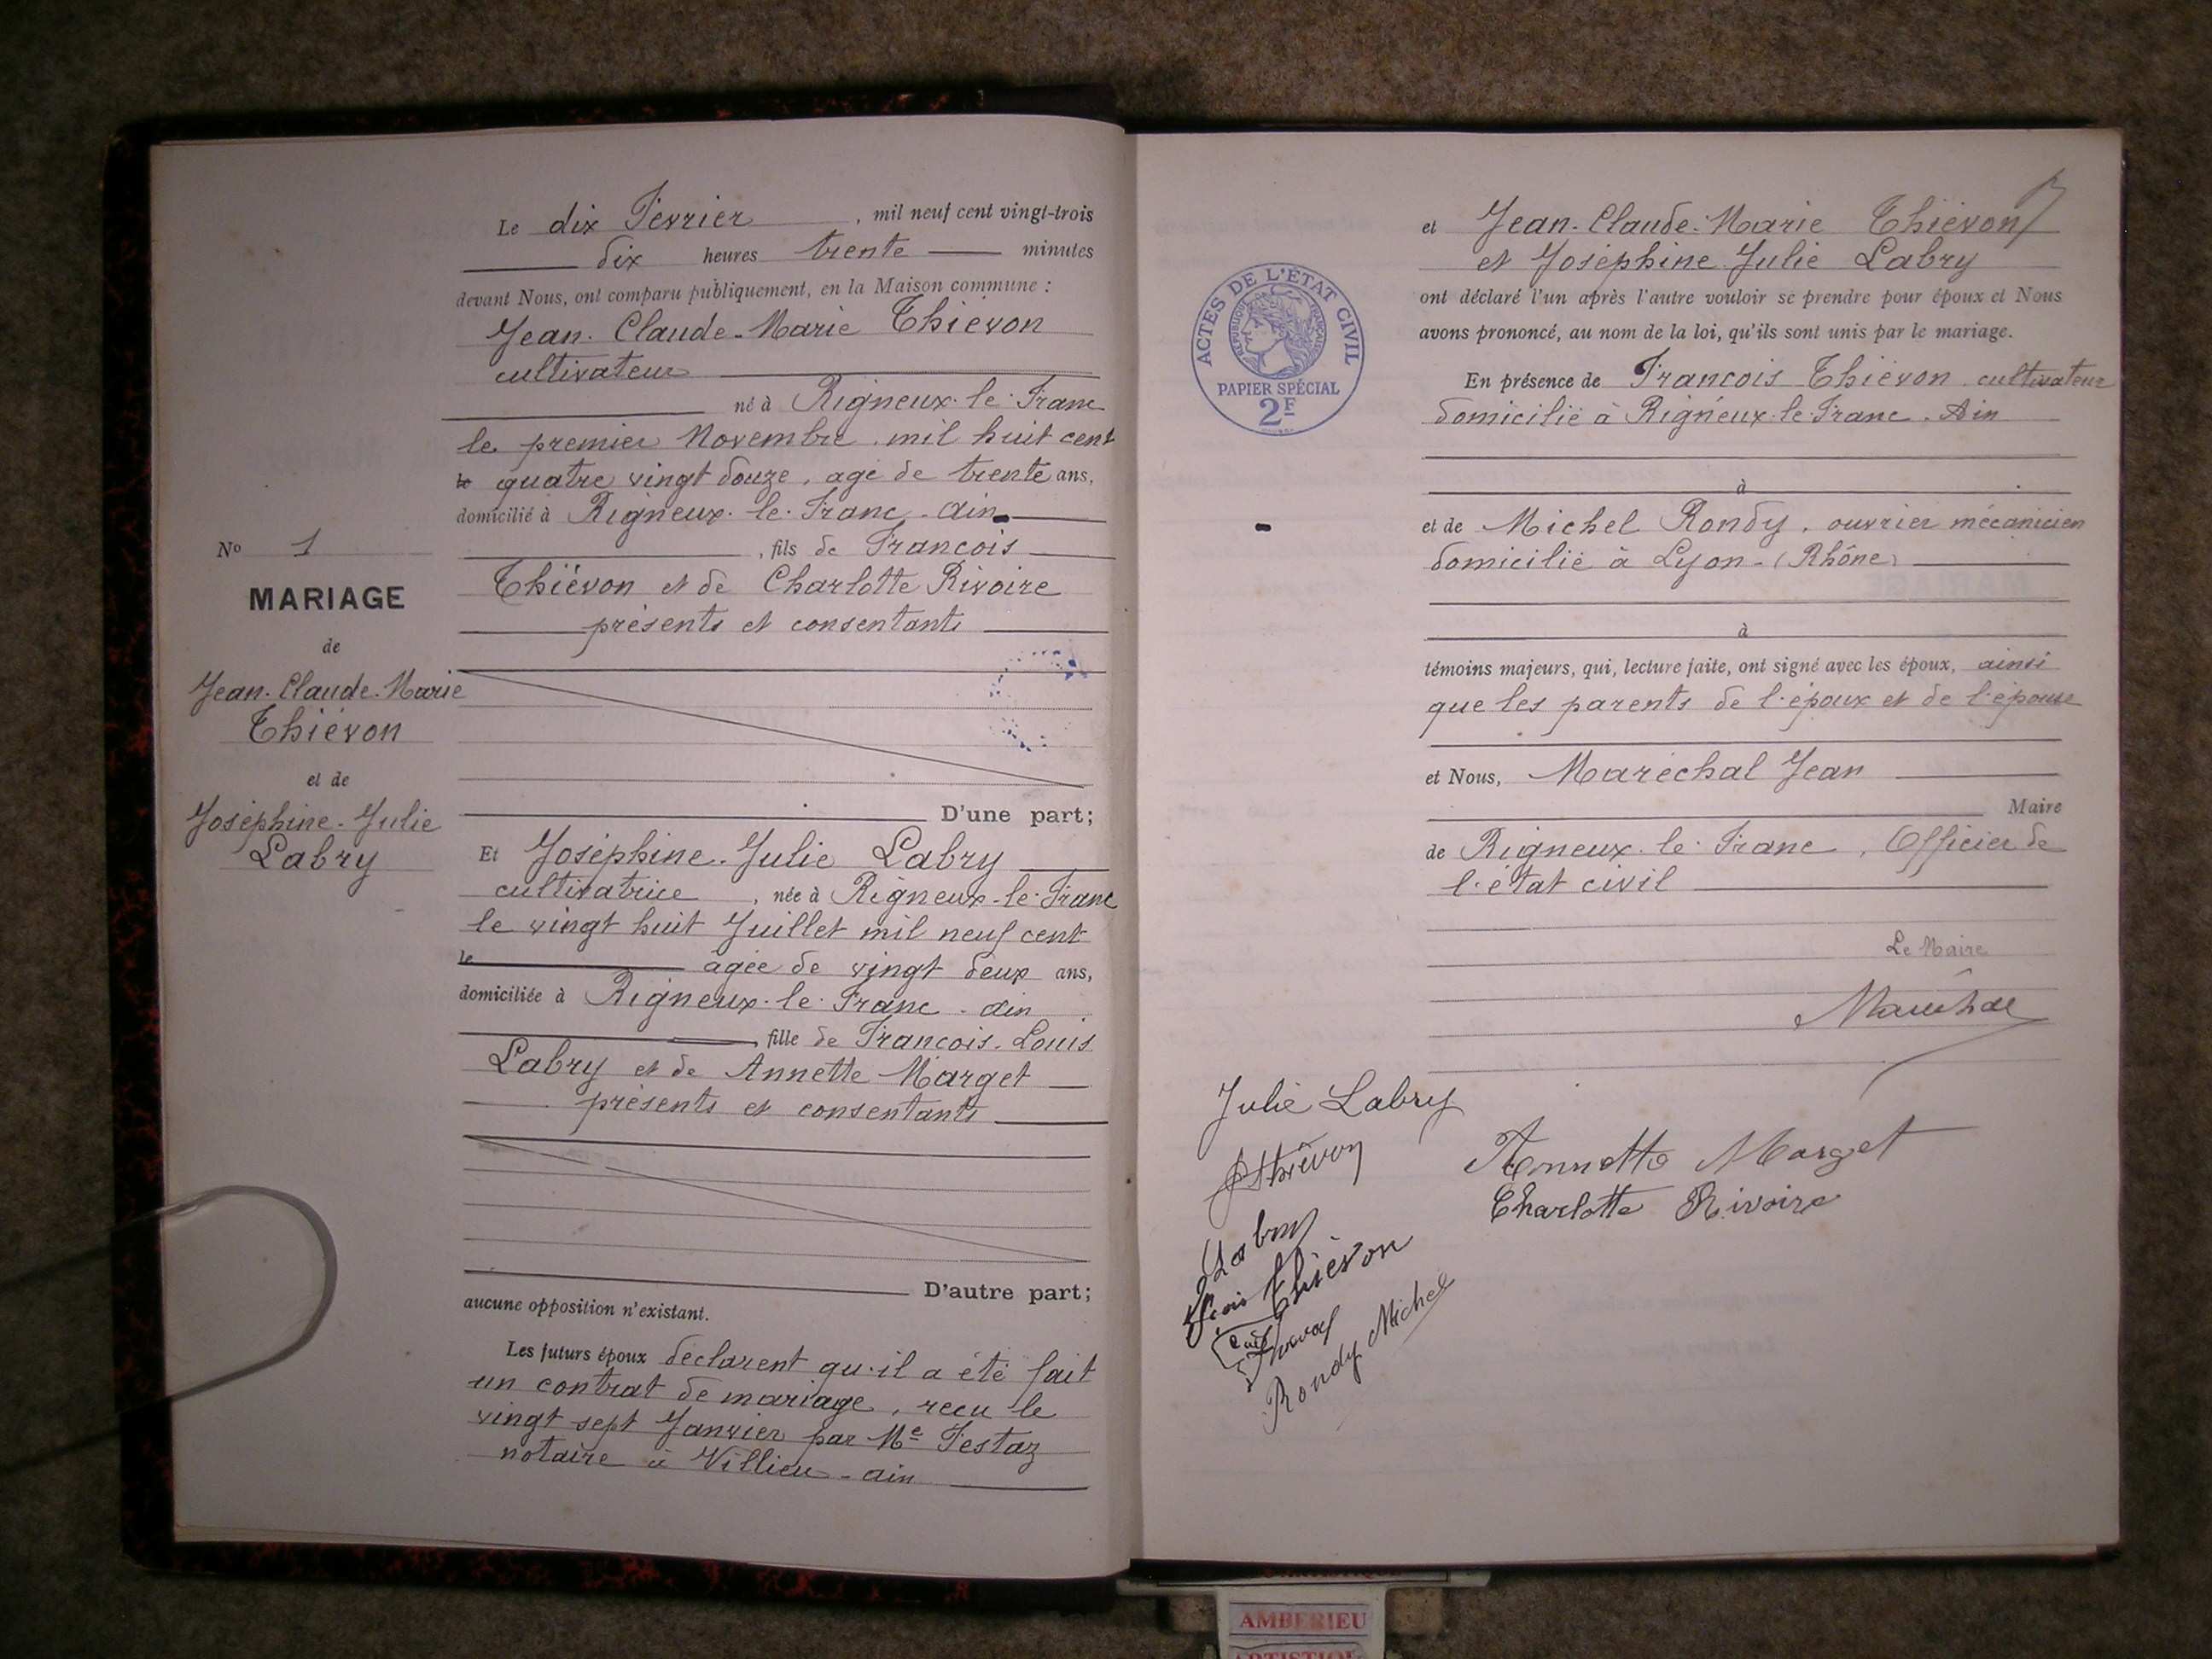 Le dix Février, mil neuf cent vingt-trois
dix heures trente minutes
devant Nous, ont comparu publiquement, en la Maison commune :
Jean-Claude-Marie Thiévon
cultivateur
né à Rigneux-le-Franc
le premier Novembre mil huit cent
le quatre vingt douze, agé de trente ans,
domicilié à Rigneux-le-Franc - Ain
, fils de Francois
Thiévon et de Charlotte Rivoire
présents et consentants
D'une part;
Nº 1
MARIAGE
de
Jean-Claude-Marie
Thiévon
et de
Joséphine-Julie
Labry
Et Joséphine-Julie Labry
cultivatrice, née à Rigneux-le-Franc
le vingt huit Juillet mil neuf cent
le agée de vingt deux ans,
domiciliée à Rigneux-le-Franc - Ain
, fille de Francois-Louis
Labry et de Annette Marget
présents et consentants
D'autre part;
aucune opposition n'existant.
Les futurs époux déclarent qu'il a été fait
un contrat de mariage, recu le
vingt sept Janvier par Me Festaz
notaire à Villieu - Ain
et Jean-Claude-Marie Thiévon
et Joséphine Julie Labry
ont déclaré l'un après l'autre vouloir se prendre pour époux et Nous
avons prononcé, au nom de la loi, qu'ils sont unis par le mariage.
En présence de Francois Thiévon cultivateur
domicilié à Rigneux-le-Franc - Ain
à
et de Michel Rondy, ouvrier mécanicien
domicilié à Lyon - (Rhône)
à
témoins majeurs, qui, lecture faite, ont signé avec les époux, ainsi
que les parents de l'époux et de l'épouse
et Nous, Maréchal Jean
Maire
de Rigneux-le-Franc, Officier de
l'état civil
Le Maire
Maréchal
ACTES DE L'ÉTAT CIVIL
RÉPUBLIQUE FRANÇAISE
PAPIER SPÉCIAL
2F
Julie Labry
Thiévon
Labry
Thiévon
Rondy Michel
Annette Marget
Charlotte Rivoire
AMBERIEU